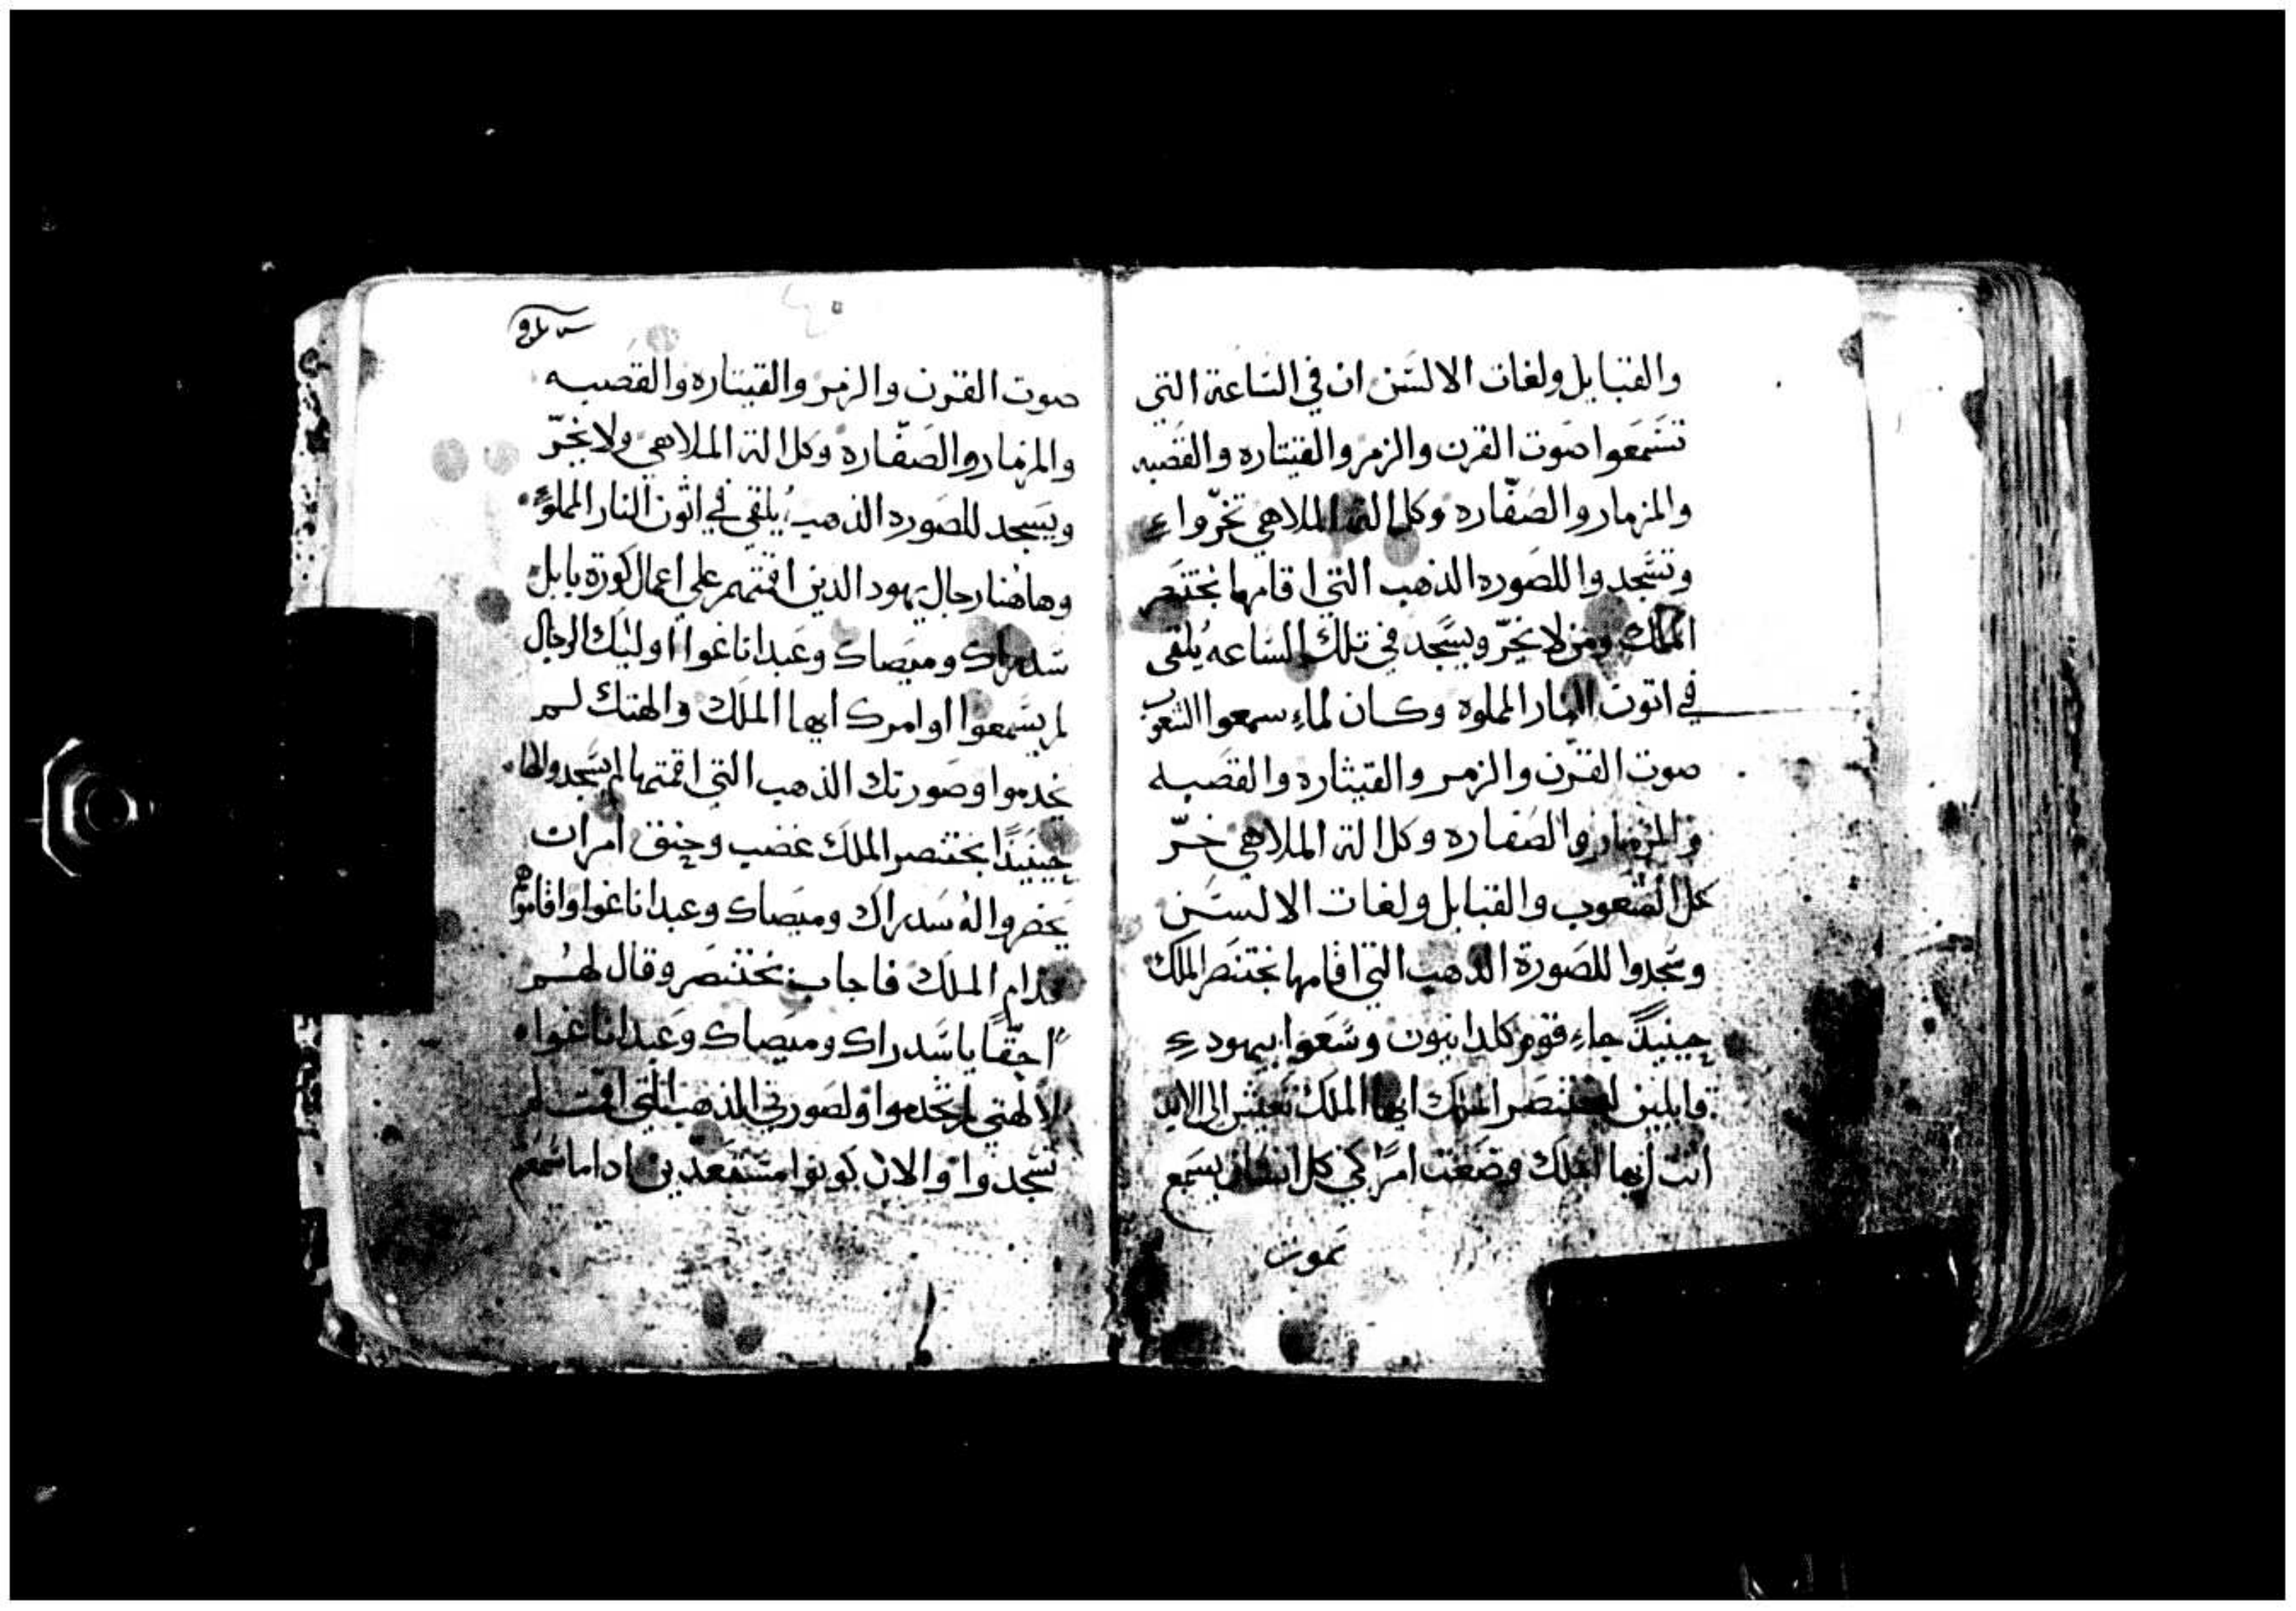 والقبايل ولغات الالسَن ان في السَاعة التي
تسَمَعوا صَوت القرن والزمر والقيتاره والقصَبه
والمزمار والصَفّاره وكل الة الملاهي تخرّوا
وتسَّجدوا للصَوره الذهب التي اقامها بختنصَر
الملك ومن لا يخرّ ويسَّجد في تلك السَاعه يُلقى
في اتون النار المملوه وكان لماء سمعوا الشعوب
صوت القرن والزمر والقيثاره والقصَبه
والمزمار والصَفاره وكل الة الملاهي خرّ
كل الشعوب والقبايل ولغات الالسَن
وسَجدوا للصَورة الذهب التي اقامها بختنصَر الملك
حينيدًّ جاء قوم كلدانيون وسَعَوا بيهود
قايلين لبختنصَر الملك ايها الملك تعيش الى الابد
انت ايها الملك وضَعت امرًا كي كل انسَان يسَمع
صوت
صوت القرن والزمر والقيتاره والقصَبه
والمزمار والصَفّاره وكل الة الملاهي ولا يخرّ
ويسَجد للصَوره الذهب يُلقى في اتون النار المملوّة
وهاهُنا رجال يهود الدين اقمتهم على اعمال كورة بابل
سَدراك وميصَاك وعَبداناغوا اوليَك الرجال
لم يسَّمعوا اوامرك ايها الملك والهتك لم
يخدموا وصَورتك الذهب التي اقمتها لم يسَّجدوا لها
حينيَذًا بختنصر الملك غضب وحنق امر ان
يَحضروا لهُ سَدراك وميصَاك وعبداناغوا واقاموهم
قدام الملك فاجاب بختنصَر وقال لهُم
احقًّا يا سَّدراك وميصَاك وعَبداناغوا
لالهتي لم تخدموا ولصَورتي الذهب التي اقمت لم
تسَّجدوا والان كونوا مسَتعدين اداما سَمعتم